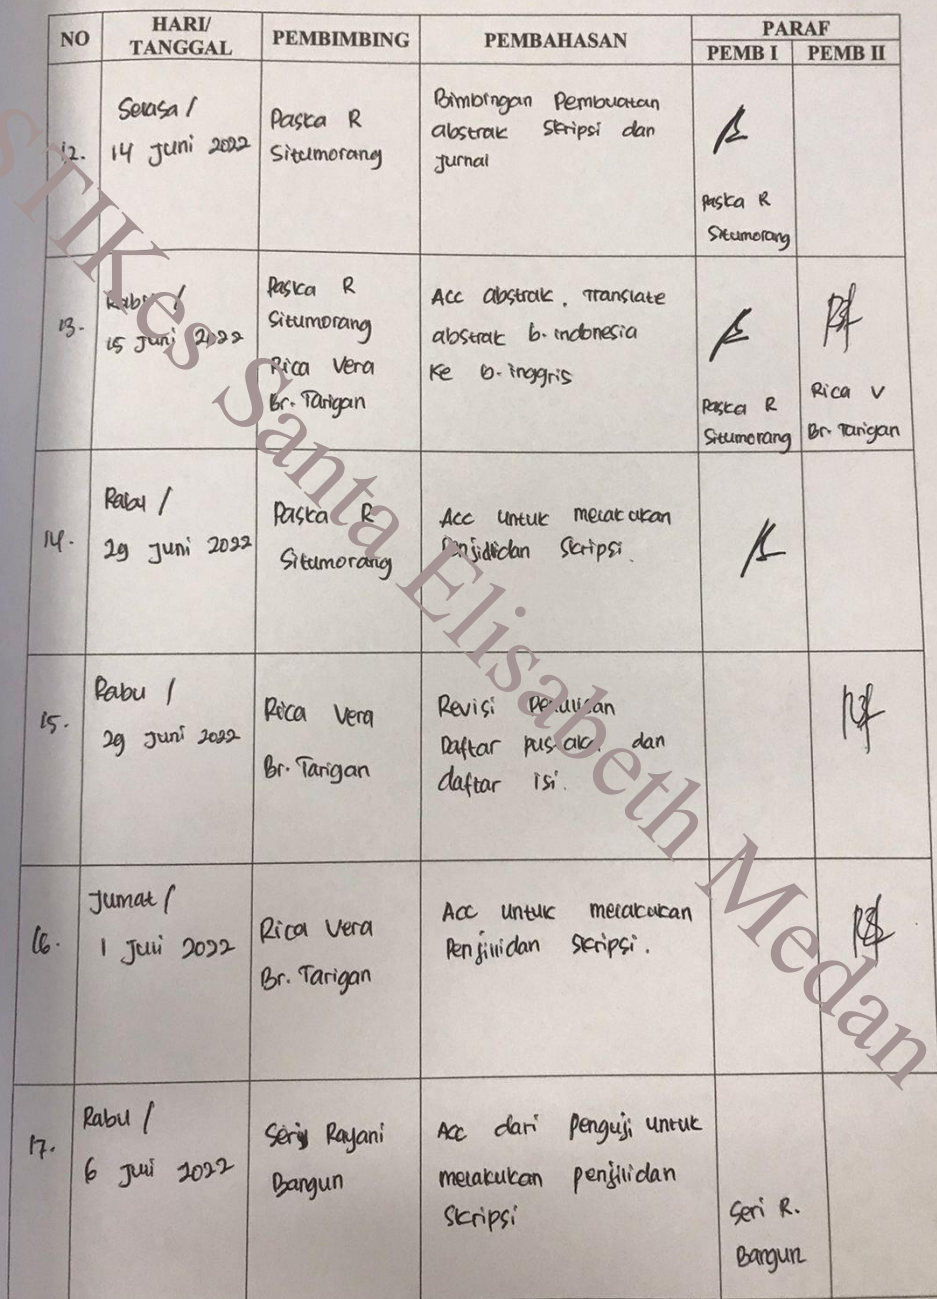 NO
HARI/
TANGGAL
PEMBIMBING
PEMBAHASAN
PARAF
PEMB I
PEMB II
12.
Selasa /
14 Juni 2022
Paska R
Situmorang
Bimbingan Pembuatan
abstrak Skripsi dan
jurnal
Paska R
Situmorang
13.
Rabu /
15 Juni 2022
Paska R
Situmorang
Rica Vera
Br. Tarigan
Acc abstrak, Translate
abstrak b. indonesia
Ke b. inggris
Paska R
Situmorang
Rica V
Br. Tarigan
14.
Rabu /
29 Juni 2022
Paska R
Situmorang
Acc untuk melakukan
Penjilidan Skripsi.
15.
Rabu /
29 Juni 2022
Rica Vera
Br. Tarigan
Revisi Penulisan
Daftar pustaka dan
daftar isi.
16.
Jumat /
1 Juli 2022
Rica Vera
Br. Tarigan
Acc untuk melakukan
Penjilidan Skripsi.
17.
Rabu /
6 Juli 2022
Seri Rayani
Bangun
Acc dari Penguji untuk
melakukan penjilidan
Skripsi
Seri R.
Bangun
STIKes Santa Elisabeth Medan